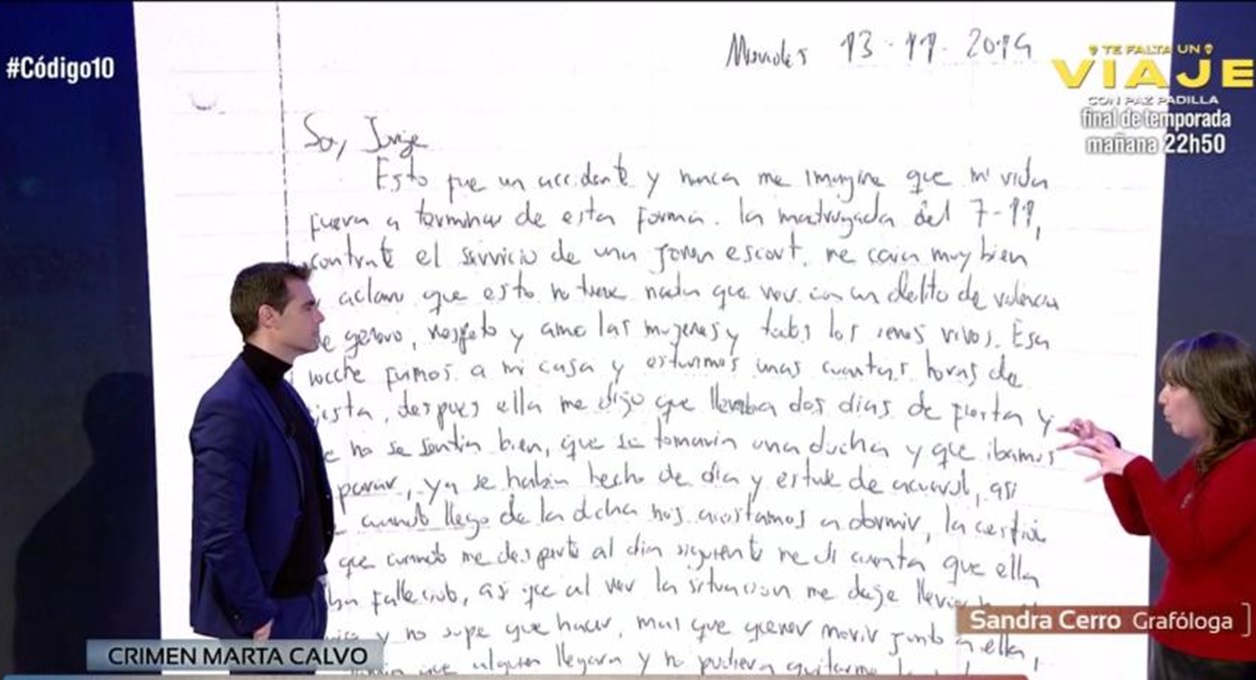 #Código10
TE FALTA UN
VIAJE
CON PAZ PADILLA
final de temporada
mañana 22h50
13-11-2019
Soy Jorge
Esto fue un accidente y nunca me imagine que mi vida
fuera a terminar de esta forma. la madrugada del 7-11,
contraté el servicio de una joven escort, me caia muy bien
aclaro que esto no tiene nada que ver con un delito de
genero, respeto y amo las mujeres y todos los seres vivos. Esa
noche fuimos a mi casa y estuvimos unas cuantas horas de
, despues ella me dijo que llevaba dos dias de fiesta y
no se sentia bien, que se tomaria una ducha y que ibamos
parar, ya se habia hecho de dia y estuve de acuerdo, asi
cuando llego de la ducha nos acostamos a dormir, la
que cuando me desperté al dia siguiente me di cuenta que ella
fallecido, asi que al ver la situacion me deje
y no supe que hacer, mas que querer morir junto a ella,
que alguien llegara y no pudiera quitarme
Sandra Cerro Grafóloga
CRIMEN MARTA CALVO